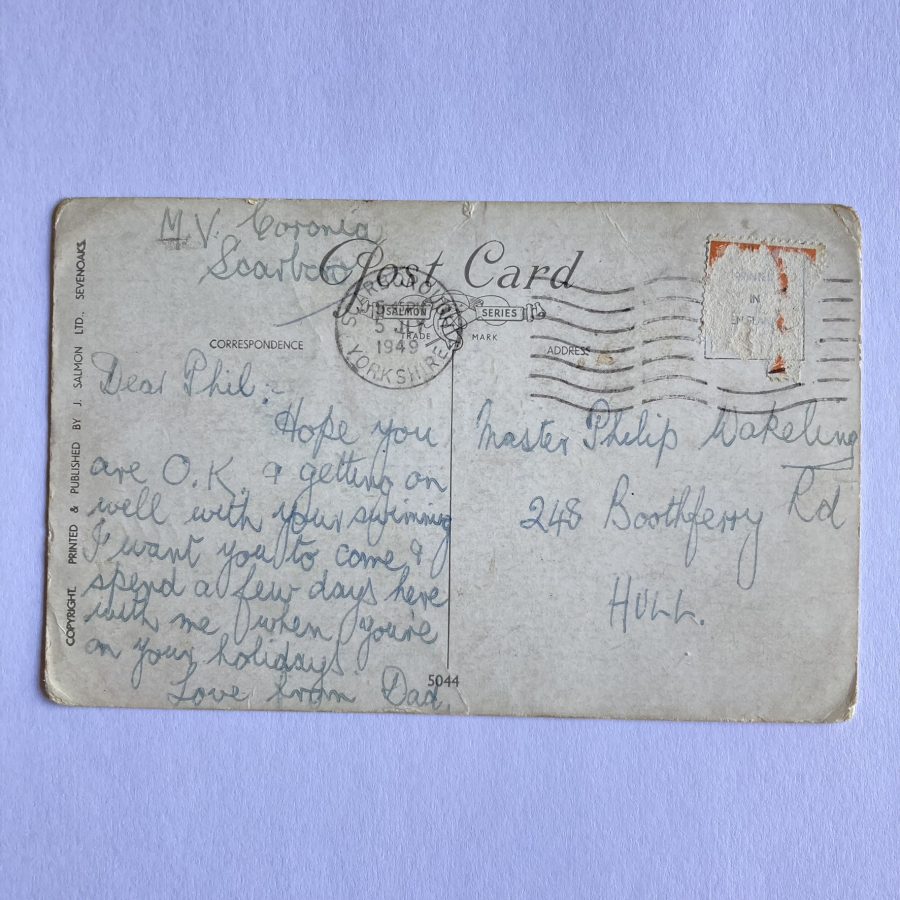 M.V. Coronia
Scarboro
Post Card
SALMON SERIES
TRADE MARK
SCARBOROUGH
5 JLY
1949
YORKSHIRE
PRINTED
IN
ENGLAND
CORRESPONDENCE
ADDRESS
COPYRIGHT. PRINTED & PUBLISHED BY J. SALMON LTD., SEVENOAKS.
Dear Phil:
Hope you
are O.K. & getting on
well with your swimming
I want you to come, &
spend a few days here
with me when you're
on your holidays
Love from Dad.
5044
Master Philip Wakeling
248 Boothferry Rd
HULL.